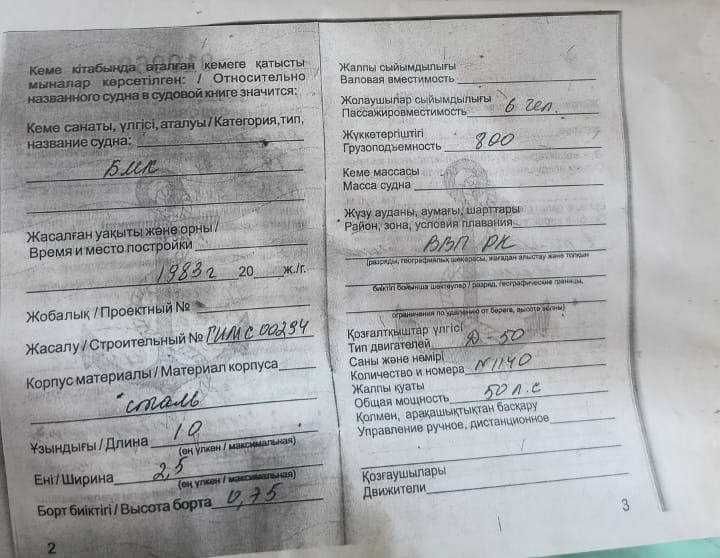 Кеме кітабында аталған кемеге қатысты
мыналар көрсетілген: / Относительно
названного судна в судовой книге значится:
Кеме санаты, үлгісі, аталуы / Категория, тип,
название судна:
БМК
Жасалған уақыты және орны /
Время и место постройки
1983 г 20 ж./г.
Жобалық / Проектный №
Жасалу / Строительный № ГИМС 00294
Корпус материалы / Материал корпуса
сталь
Ұзындығы / Длина 10
(ең үлкен / максимальная)
Ені / Ширина 2,5
(ең үлкен / максимальная)
Борт биіктігі / Высота борта 0,75
2
Жалпы сыйымдылығы
Валовая вместимость
Жолаушылар сыйымдылығы
Пассажировместимость 6 чел.
Жүккөтергіштігі
Грузоподъемность 800
Кеме массасы
Масса судна
Жүзу ауданы, аумағы, шарттары
Район, зона, условия плавания
ВВП РК
(разряды, географиялық шекарасы, жағадан алыстау және толқын
биіктігі бойынша шектеулер / разряд, географические границы,
ограничения по удалению от берега, высоте волны)
Қозғалтқыштар үлгісі
Тип двигателей Д-50
Саны және нөмірі
Количество и номера N1140
Жалпы қуаты
Общая мощность 50 л.с
Қолмен, арақашықтықтан басқару
Управление ручное, дистанционное
Қозғаушылары
Движители
3